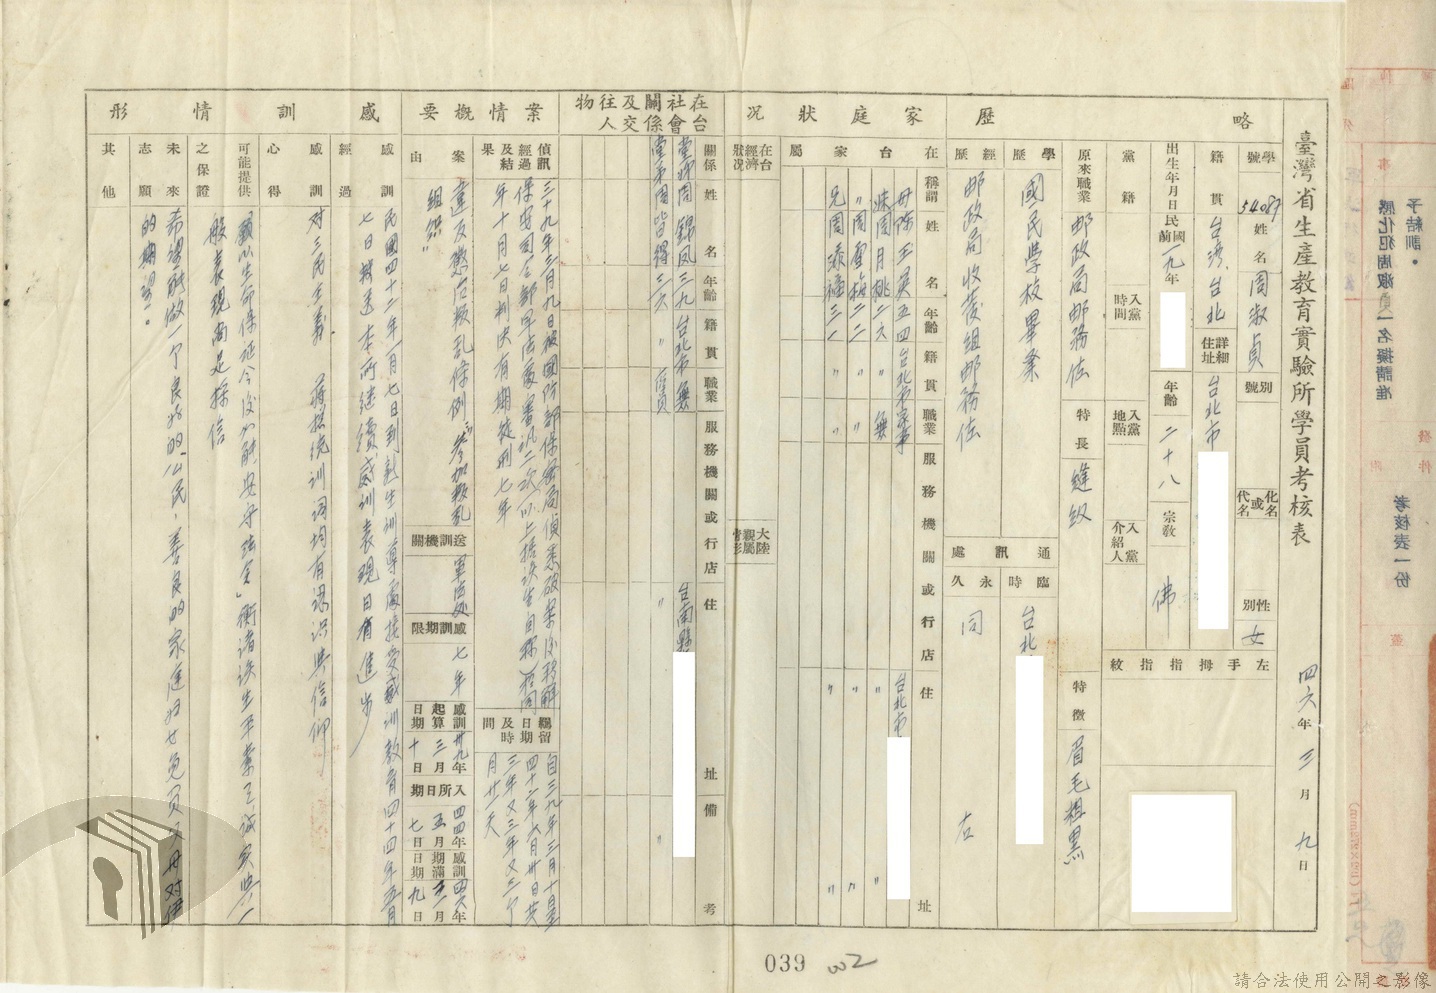 臺灣省生產教育實驗所學員考核表
四六年三月九日
學號
54087
姓名
周淑貞
別號
化名或代名
性別
女
籍貫
台灣台北
詳細住址
台北市
左手拇指指紋
出生年月日
民國前
一九年
年齡
二十八
宗教
佛
黨籍
入黨時間
入黨地點
入黨介紹人
原來職業
郵政局郵務佐
特長
縫紉
特徵
眉毛粗黑
略歷
學歷
國民學校畢業
經歷
郵政局收發組郵務佐
通訊處
臨時
台北
永久
同右
家庭狀況
在台家屬
稱謂
姓名
年齡
籍貫
職業
服務機關或行店
住址
母
陳玉英
五四
台北市
家事
台北市
妹
周月桃
二六
〃
無
〃
〃
周雪梅
二二
〃
〃
〃
兄
周添福
三一
〃
〃
〃
在台經濟狀況
大陸親屬情形
在台社會關係及交往人物
關係
姓名
年齡
籍貫
職業
服務機關或行店
住址
備考
堂姊
周錦鳳
三九
台北市
無
台南縣
堂弟
周皆得
三六
〃
店員
〃
〃
案情概要
偵訊經過及結果
三十九年三月九日被國防部保密局偵悉破案後移解
保安司令部軍法處審訊二次（以上據該生自稱）於同
年十月七日判決有期徒刑七年
羈留日期及時間
自三九年三月十日至
四十二年六月廿日共
三年又三年又三個
月廿一天
案由
違反懲治叛亂條例「參加叛亂
組織」
送訓機關
軍法處
感訓期限
七年
感訓起算日期
卅九年三月十日
入所日期
四四年五月七日
感訓期滿日期
四六年三月九日
感訓情形
感訓經過
民國四十二年一月七日到新生訓導處接受感訓教育四十四年五月
七日移送本所繼續感訓表現日有進步
感訓心得
對三民主義　蔣總統訓詞均有認識與信仰
可能提供之保證
願以生命保証今後必能與守法令」衡諸該生平素之誠實與一
般表現尚足採信
未來志願
希望能做一個良好的公民，善良的家庭婦女免負父母對伊
的期望。
其他
039
請合法使用公開之影像
予結訓。
感化犯周淑貞一名擬請准
考核表一份